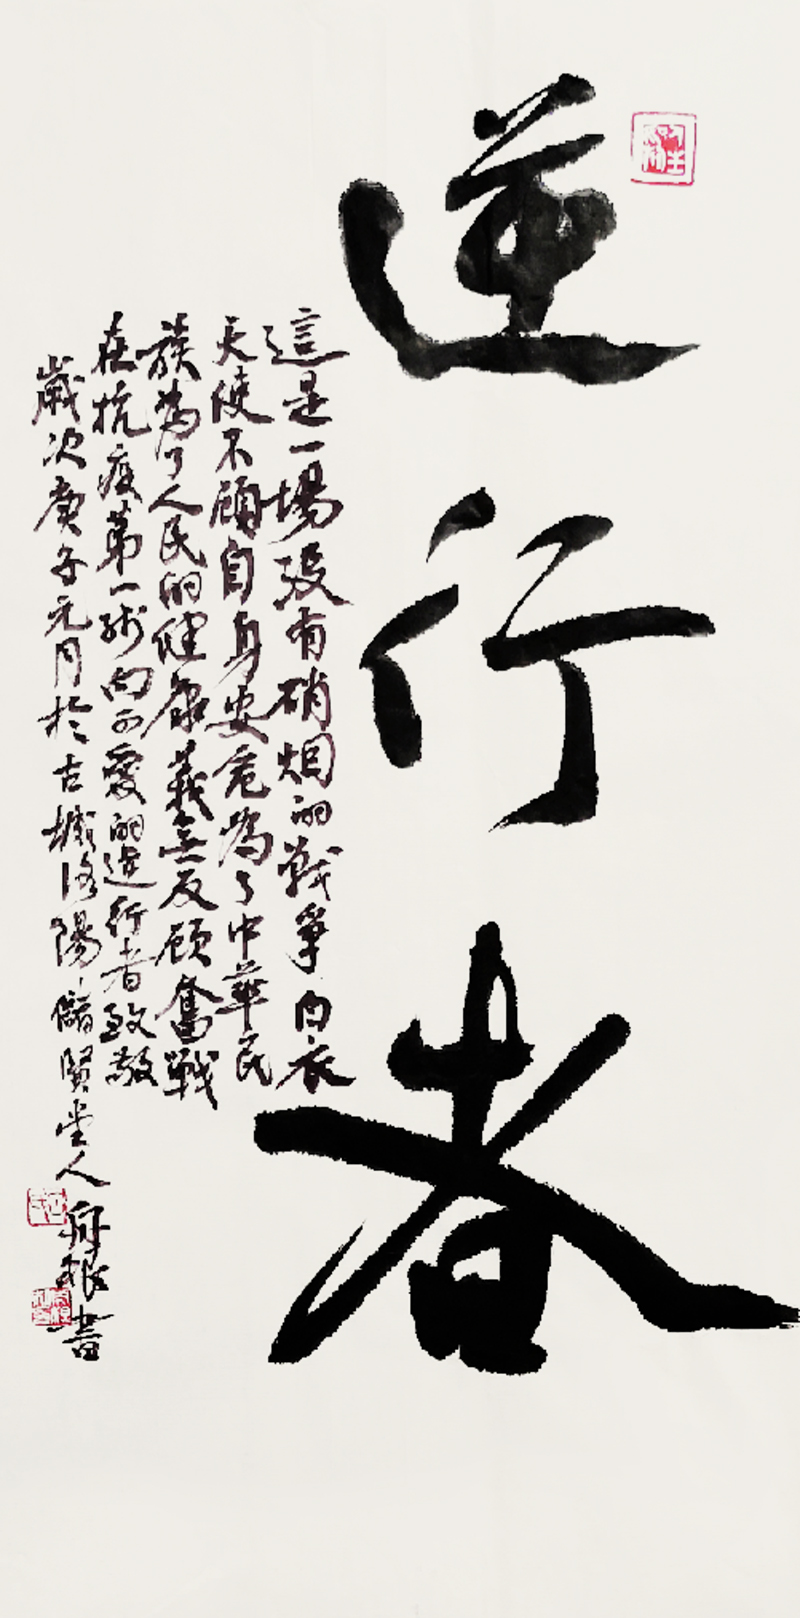 逆行者
這是一場没有硝烟的戰争白衣
天使不顧自身安危為了中華民
族為了人民的健康義無反顾奮戰
在抗疫第一线向可愛的逆行者致敬
歲次庚子元月於古城洛陽儲賢堂人
府根書